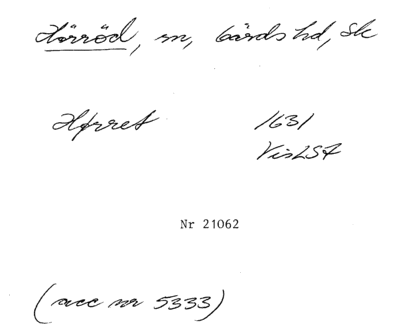 Hörröd, sn, Gärds hd, Sk
Hørret 1631
VisLSA
Nr 21062
(acc nr 5333)